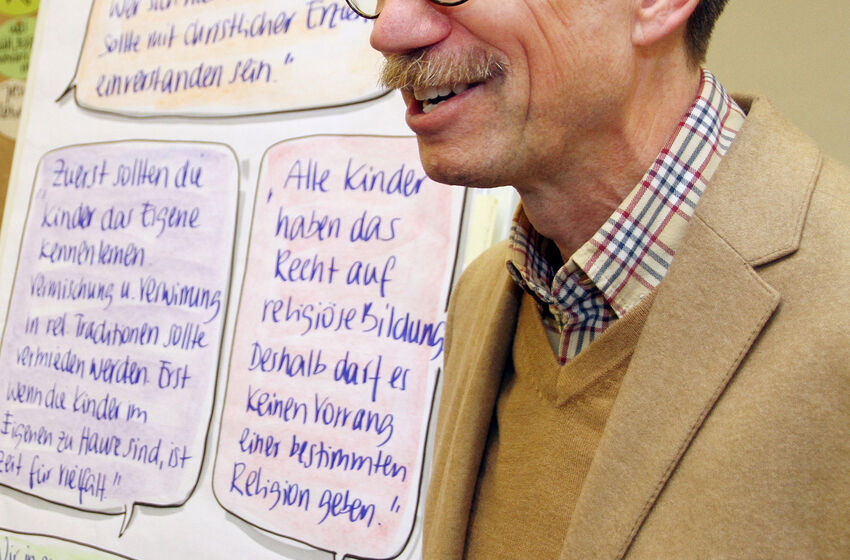 Wer sich
sollte mit christlicher
einverstanden sein."
"Zuerst sollten die
Kinder das Eigene
kennenlernen.
Vermischung u. Verwirrung
in rel. Traditionen sollte
vermieden werden. Erst
wenn die Kinder im
Eigenen zu Hause sind, ist
Zeit für Vielfalt."
„Alle Kinder
haben das
Recht auf
religiöse Bildung
Deshalb darf es
keinen Vorrang
einer bestimmten
Religion geben."
Wir in